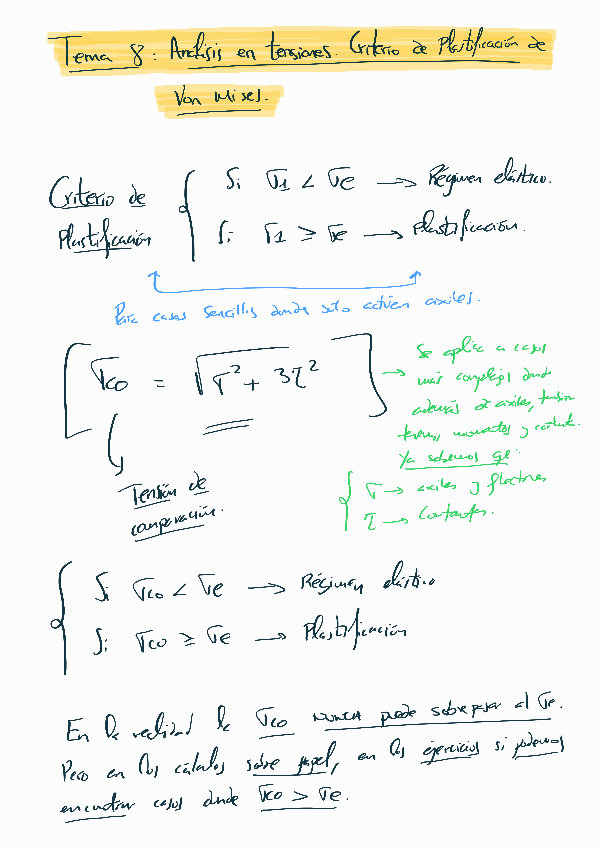 Tema 8: Análisis en tensiones. Criterio de Plastificación de
Von Mises.
Criterio de Plastificación { Si σ1 < σe → Régimen elástico.
Si σ1 ≥ σe → Plastificación.
Para casos sencillos donde solo actúen axiles.
[σco = √σ² + 3τ²]
→ Se aplica a casos
más complejos donde
además de axiles, también
tenemos momentos y cortante.
Ya sabemos qe:
{ σ → axiles y flectores
τ → Cortantes.
Tensión de
comparación.
{ Si σco < σe → Régimen elástico
Si σco ≥ σe → Plastificación
En la realidad la σco NUNCA puede sobrepasar al σe.
Pero en los cálculos sobre papel, en los ejercicios si podemos
encontrar casos donde σco > σe.